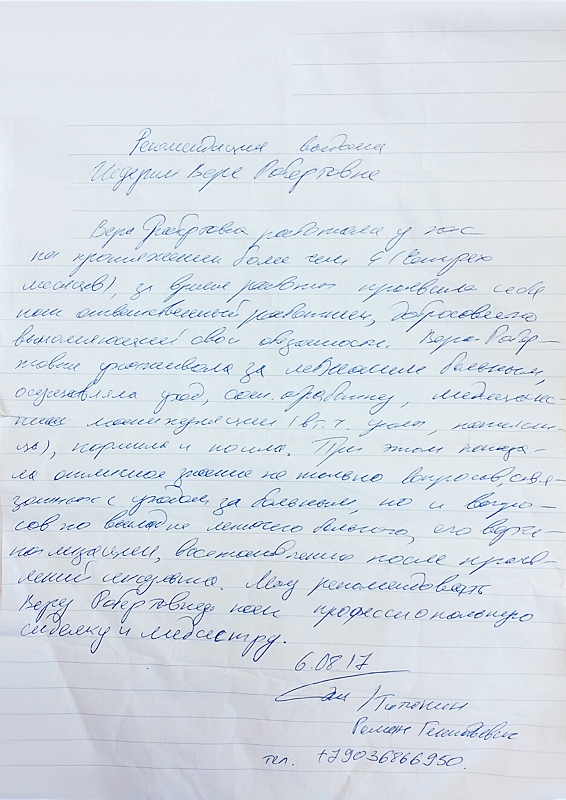 Рекомендация выдана
Вере Робертовне
Вера Робертовна работала у нас
на протяжении более чем 4 (четырех
месяцев), за время работы проявила себя
как ответственный работник, добросовестно
выполняющей свои обязанности. Вера Робер-
товна ухаживала за лежачим больным,
осуществляла уход, сан. обработку, медицинс-
кие манипуляции (в т.ч. уколы, капельни-
цы), кормила и поила. При этом показа-
ла отличное знание не только вопросов, свя-
занных с уходом за больным, но и вопро-
сов по выкладке лежачего больного, его
восстановлению после
инсульта. Могу рекомендовать
Веру Робертовну как профессиональную
сиделку и медсестру.
6.08.17
Роман
тел. +79036866950.